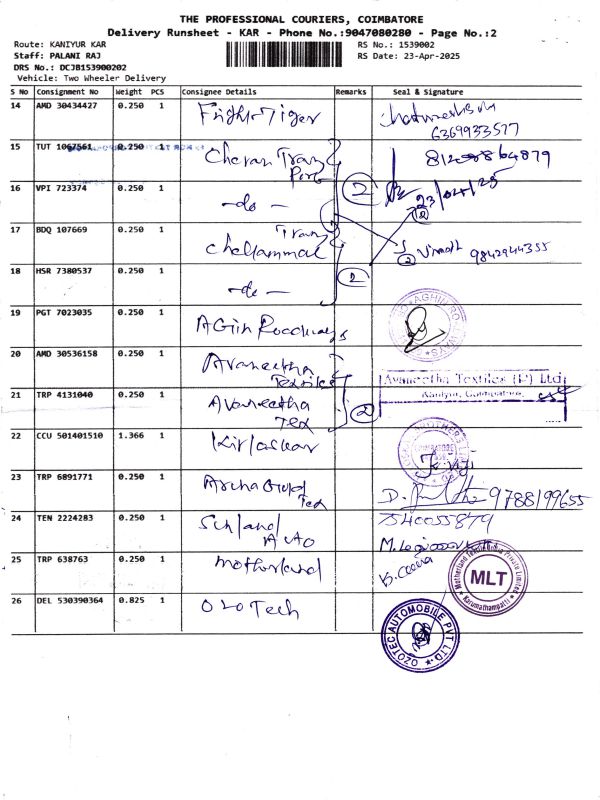 THE PROFESSIONAL COURIERS, COIMBATORE
Delivery Runsheet - KAR - Phone No.:9047080280 - Page No.:2
Route: KANIYUR KAR
RS No.: 1539002
Staff: PALANI RAJ
RS Date: 23-Apr-2025
DRS No.: DCJB153900202
Vehicle: Two Wheeler Delivery
S No Consignment No Weight PCS Consignee Details Remarks Seal & Signature
14 AMD 30434427 0.250 1
6369933577
15 TUT 1067561 0.250 1 Cheran Tran
Port
16 VPI 723374 0.250 1 -do- 2
23/04/25
17 BDQ 107669 0.250 1 Chellammal Tran
Vinoth 9842944355
18 HSR 7380537 0.250 1 -do- 2
19 PGT 7023035 0.250 1 AGin Roadways
20 AMD 30536158 0.250 1 Avaneetha
Textile
Avaneetha Textiles (P) Ltd
Kaniyur, Coimbatore.
21 TRP 4131040 0.250 1 Avaneetha
Tex 2
22 CCU 501401510 1.366 1 Kirloskar
23 TRP 6891771 0.250 1 Archa Gold
Tex
D. 9788199655
24 TEN 2224283 0.250 1
Auto
7540055879
25 TRP 638763 0.250 1 motherland
MLT
Karumathampatti
26 DEL 530390364 0.825 1 Ozo Tech
OZOTEC AUTOMOBILE PVT LTD